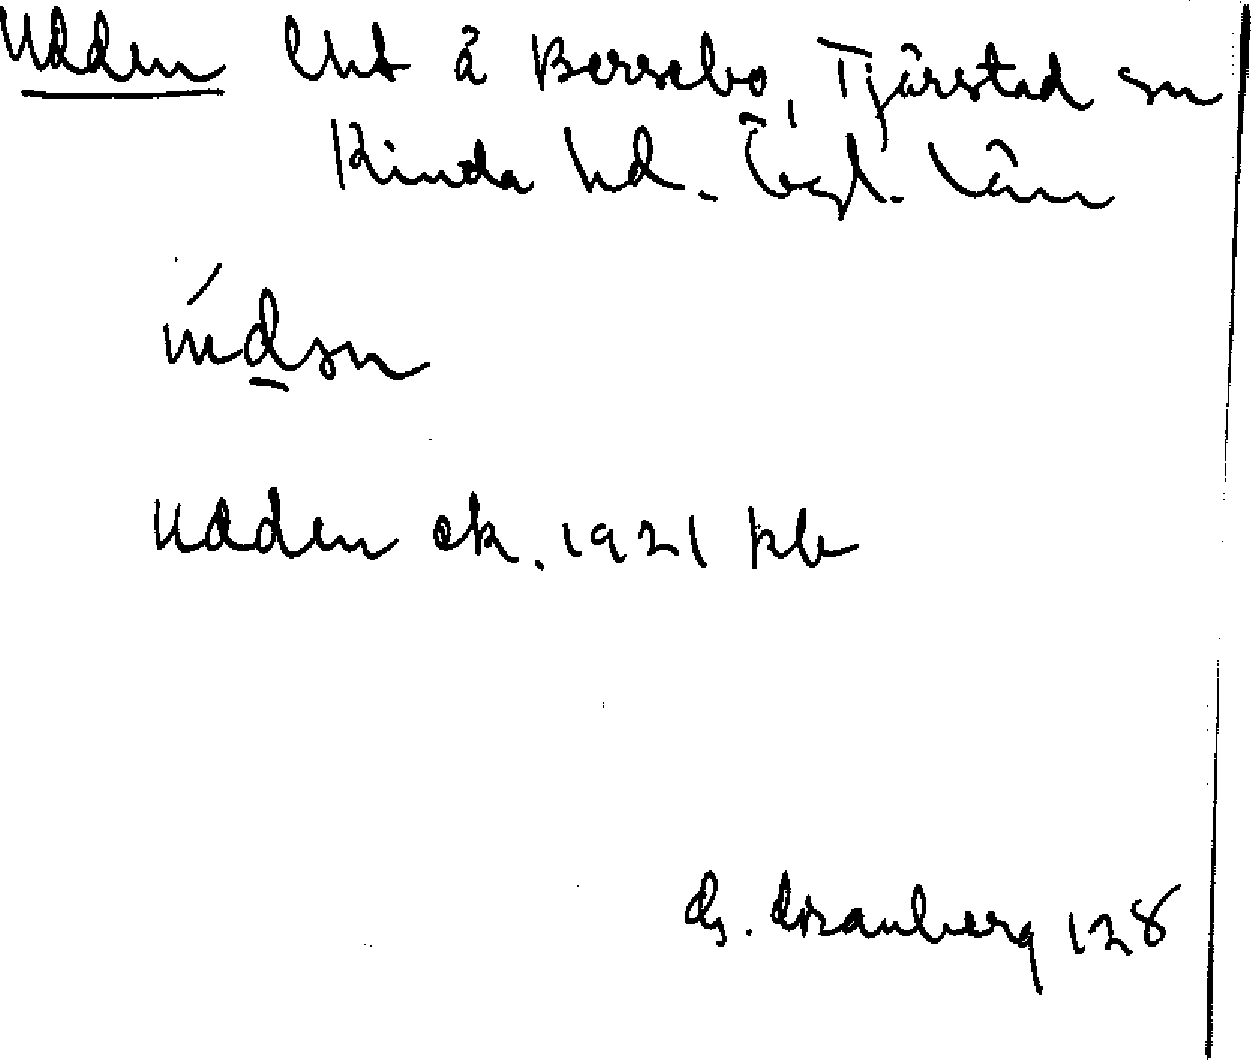 Udden lht å Bersebo, Tjärstad sn
Kinda hd. Ögl. län
Udden ek. 1921 kb
G. Granberg 128